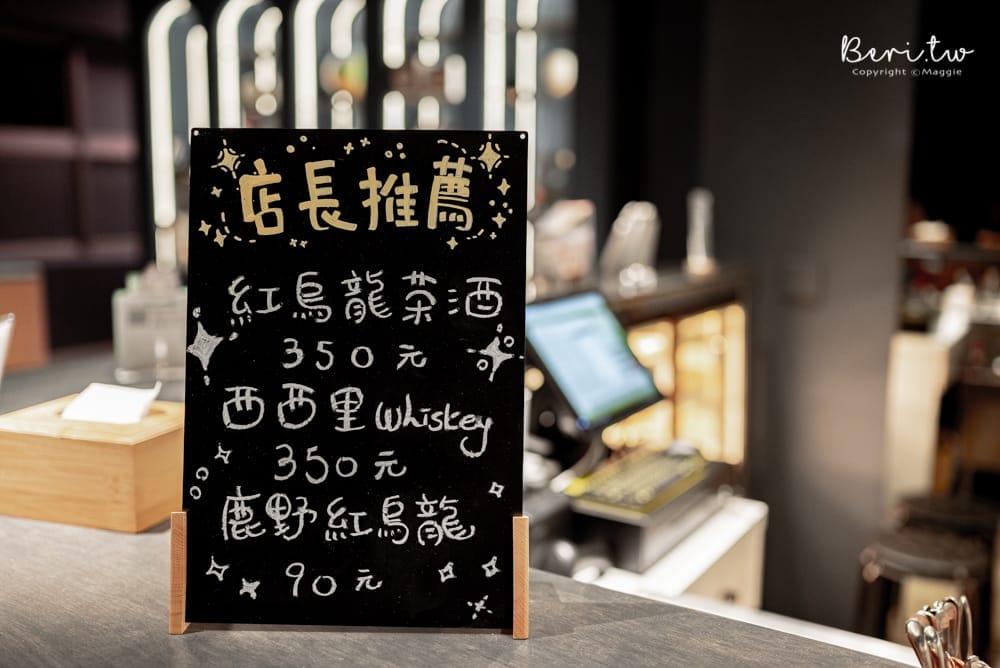 Beri.tw
Copyright ©Maggie
店長推薦
紅烏龍茶酒
350元
西西里whiskey
350元
鹿野紅烏龍
90元